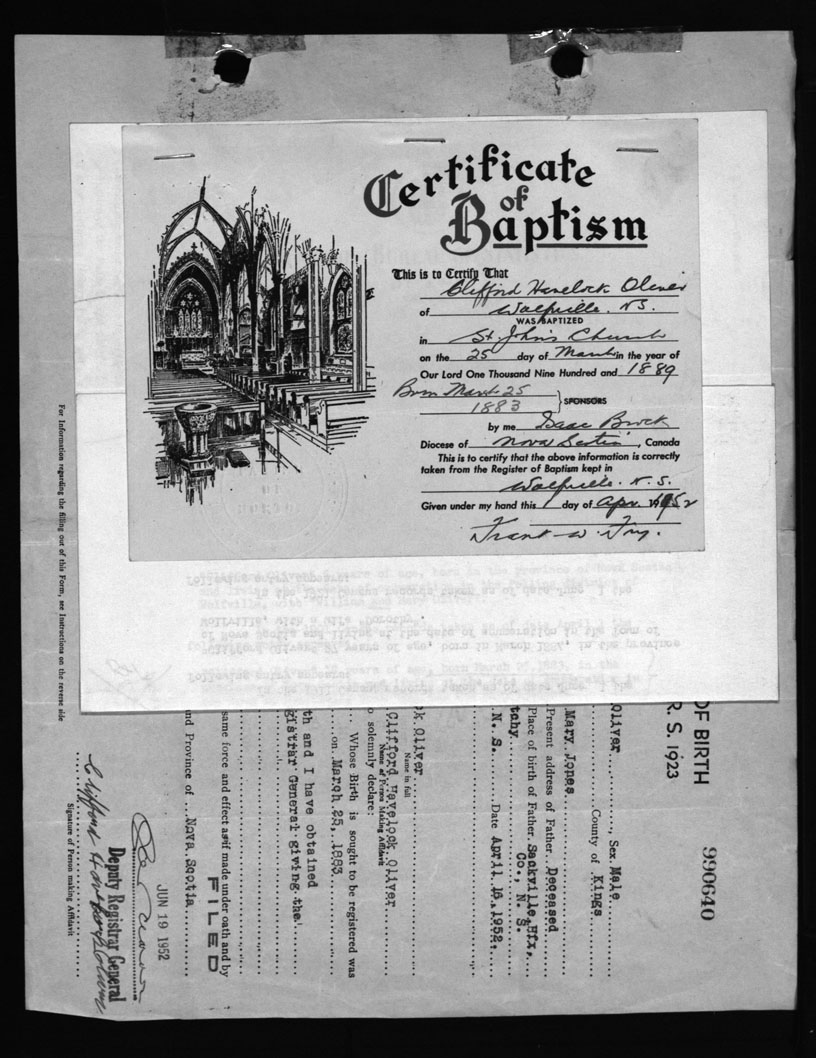 Certificate
of
Baptism
This is to Certify That
Clifford Havelock Oliver
of Wolfville. N.S.
WAS BAPTIZED
in St. John's Church
on the 25 day of March in the year of
Our Lord One Thousand Nine Hundred and 1889
Born March 25
1883 } SPONSORS
by me Isaac Brock
Diocese of Nova Scotia, Canada
This is to certify that the above information is correctly
taken from the Register of Baptism kept in
Wolfville. N. S.
Given under my hand this 1 day of Apr. 1952
Frank W.
For Information regarding the filling out of this Form, see Instructions on the reverse side
OF BIRTH
R. S. 1923
990640
Oliver, Sex Male
County of Kings
Mary Jones
Present address of Father Deceased
Place of birth of Father Sackville, Hfx.
Co., N. S.
tchy
N. S. Date April 16, 1952.
ok Oliver
Name in full
Clifford Havelock Oliver
Name of Person Making Affidavit
o solemnly declare:
Whose Birth is sought to be registered was
on March 25, 1883
th and I have obtained
gistrar General giving the
same force and effect as if made under oath and by
FILED
nd Province of Nova Scotia
JUN 19 1952
Deputy Registrar General
Clifford Havelock Oliver
Signature of Person making Affidavit